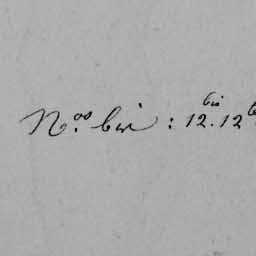 N.os bis : 12.bis 12